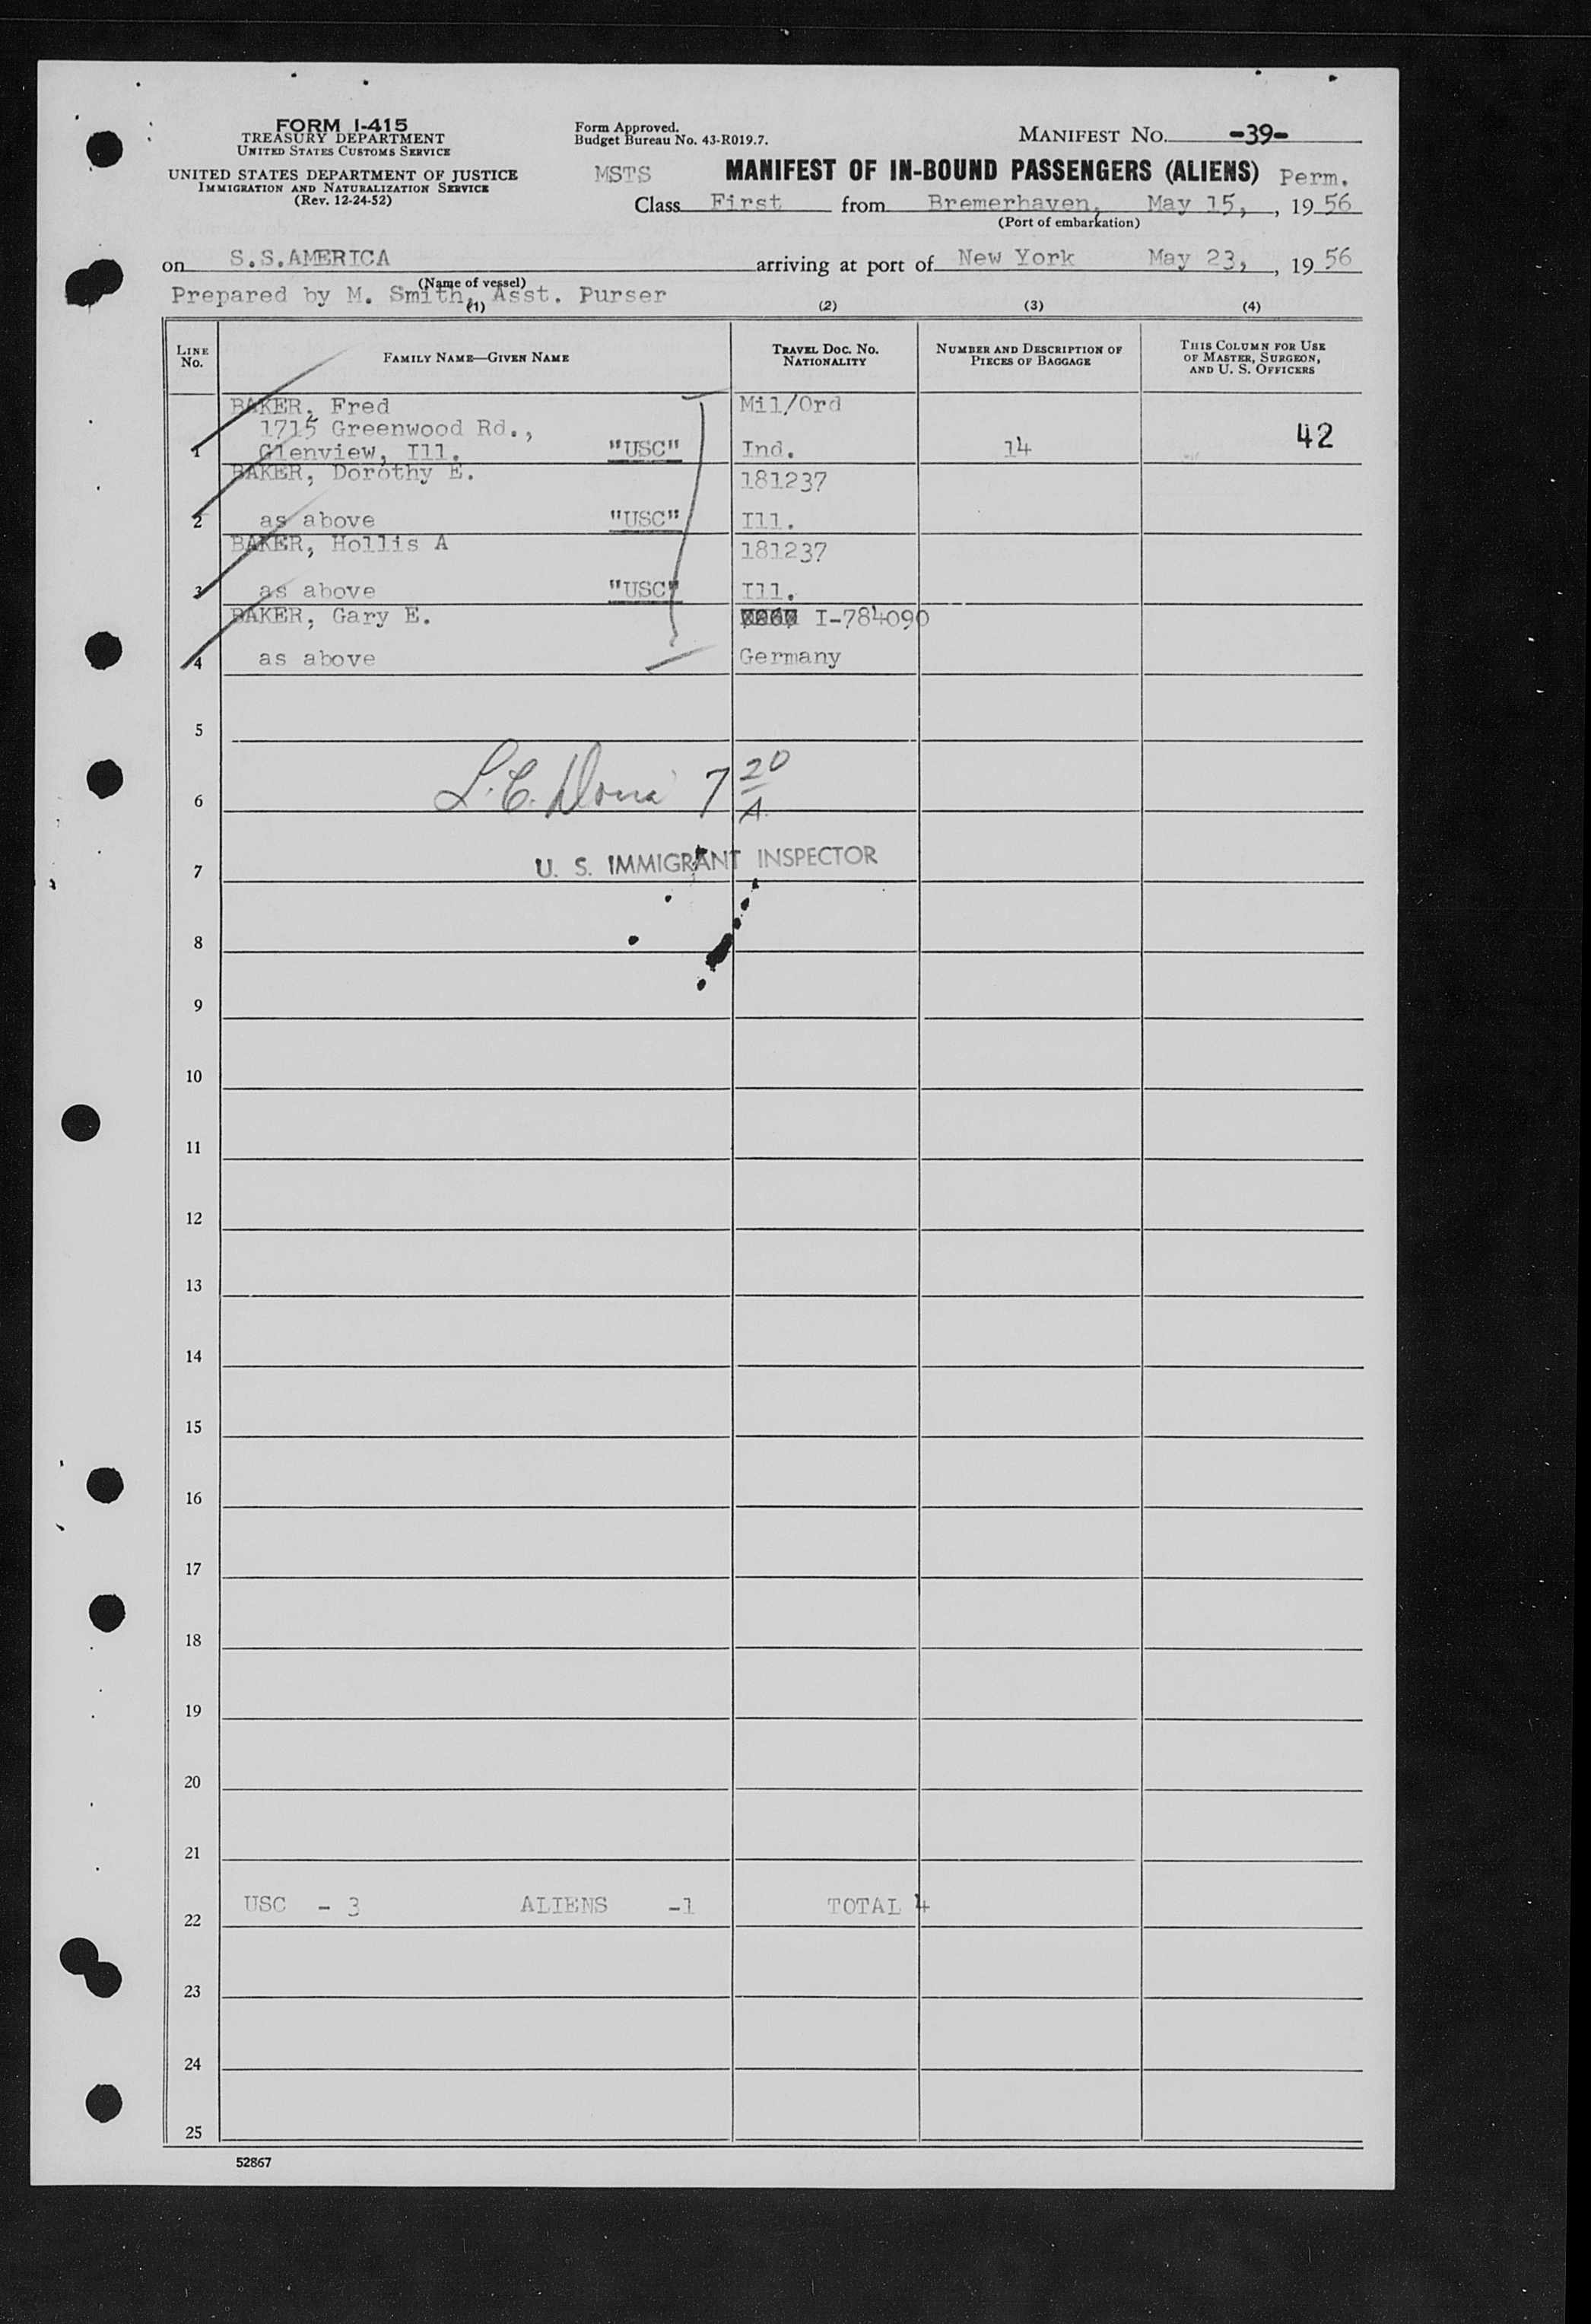 FORM I-415
TREASURY DEPARTMENT
UNITED STATES CUSTOMS SERVICE
UNITED STATES DEPARTMENT OF JUSTICE
IMMIGRATION AND NATURALIZATION SERVICE
(Rev. 12-24-52)
Form Approved.
Budget Bureau No. 43-R019.7.
MANIFEST NO. -39-
MSTS MANIFEST OF IN-BOUND PASSENGERS (ALIENS) Perm.
Class First from Bremerhaven, May 15, , 19 56
(Port of embarkation)
on S.S.AMERICA arriving at port of New York May 23, , 19 56
(Name of vessel)
Prepared by M. Smith, Asst. Purser
(1) (2) (3) (4)
LINE NO. FAMILY NAME—GIVEN NAME TRAVEL DOC. NO. NATIONALITY NUMBER AND DESCRIPTION OF PIECES OF BAGGAGE THIS COLUMN FOR USE OF MASTER, SURGEON, AND U. S. OFFICERS
BAKER, Fred Mil/Ord
1715 Greenwood Rd., 42
1 Glenview, Ill. "USC" Ind. 14
BAKER, Dorothy E. 181237
2 as above "USC" Ill.
BAKER, Hollis A 181237
3 as above "USC" Ill.
BAKER, Gary E. I-784090
4 as above Germany
5
6 L.C. 7 20 A.
7 U. S. IMMIGRANT INSPECTOR
8
9
10
11
12
13
14
15
16
17
18
19
20
21
USC - 3 ALIENS -1 TOTAL 4
22
23
24
25
52867